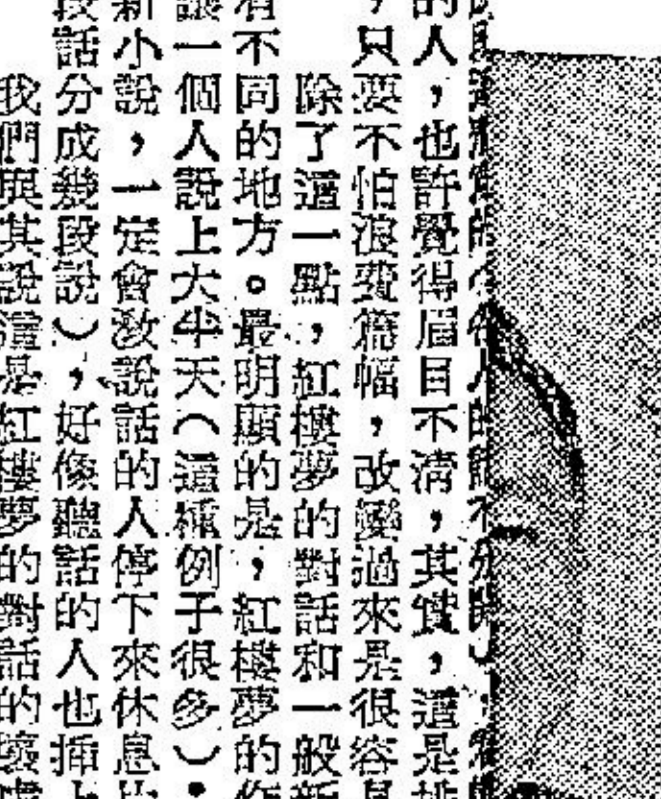 的人，也許覺得眉目不清，其實，這是
，只要不怕浪費篇幅，改變過來是很容易
除了這一點，紅樓夢的對話和一般新
有不同的地方。最明顯的是，紅樓夢的作
讓一個人說上大半天（這種例子很多）。
新小說，一定會敎說話的人停下來休息
段話分成幾段說），好像聽話的人也插上
我們與其說這是紅樓夢的對話的壞處